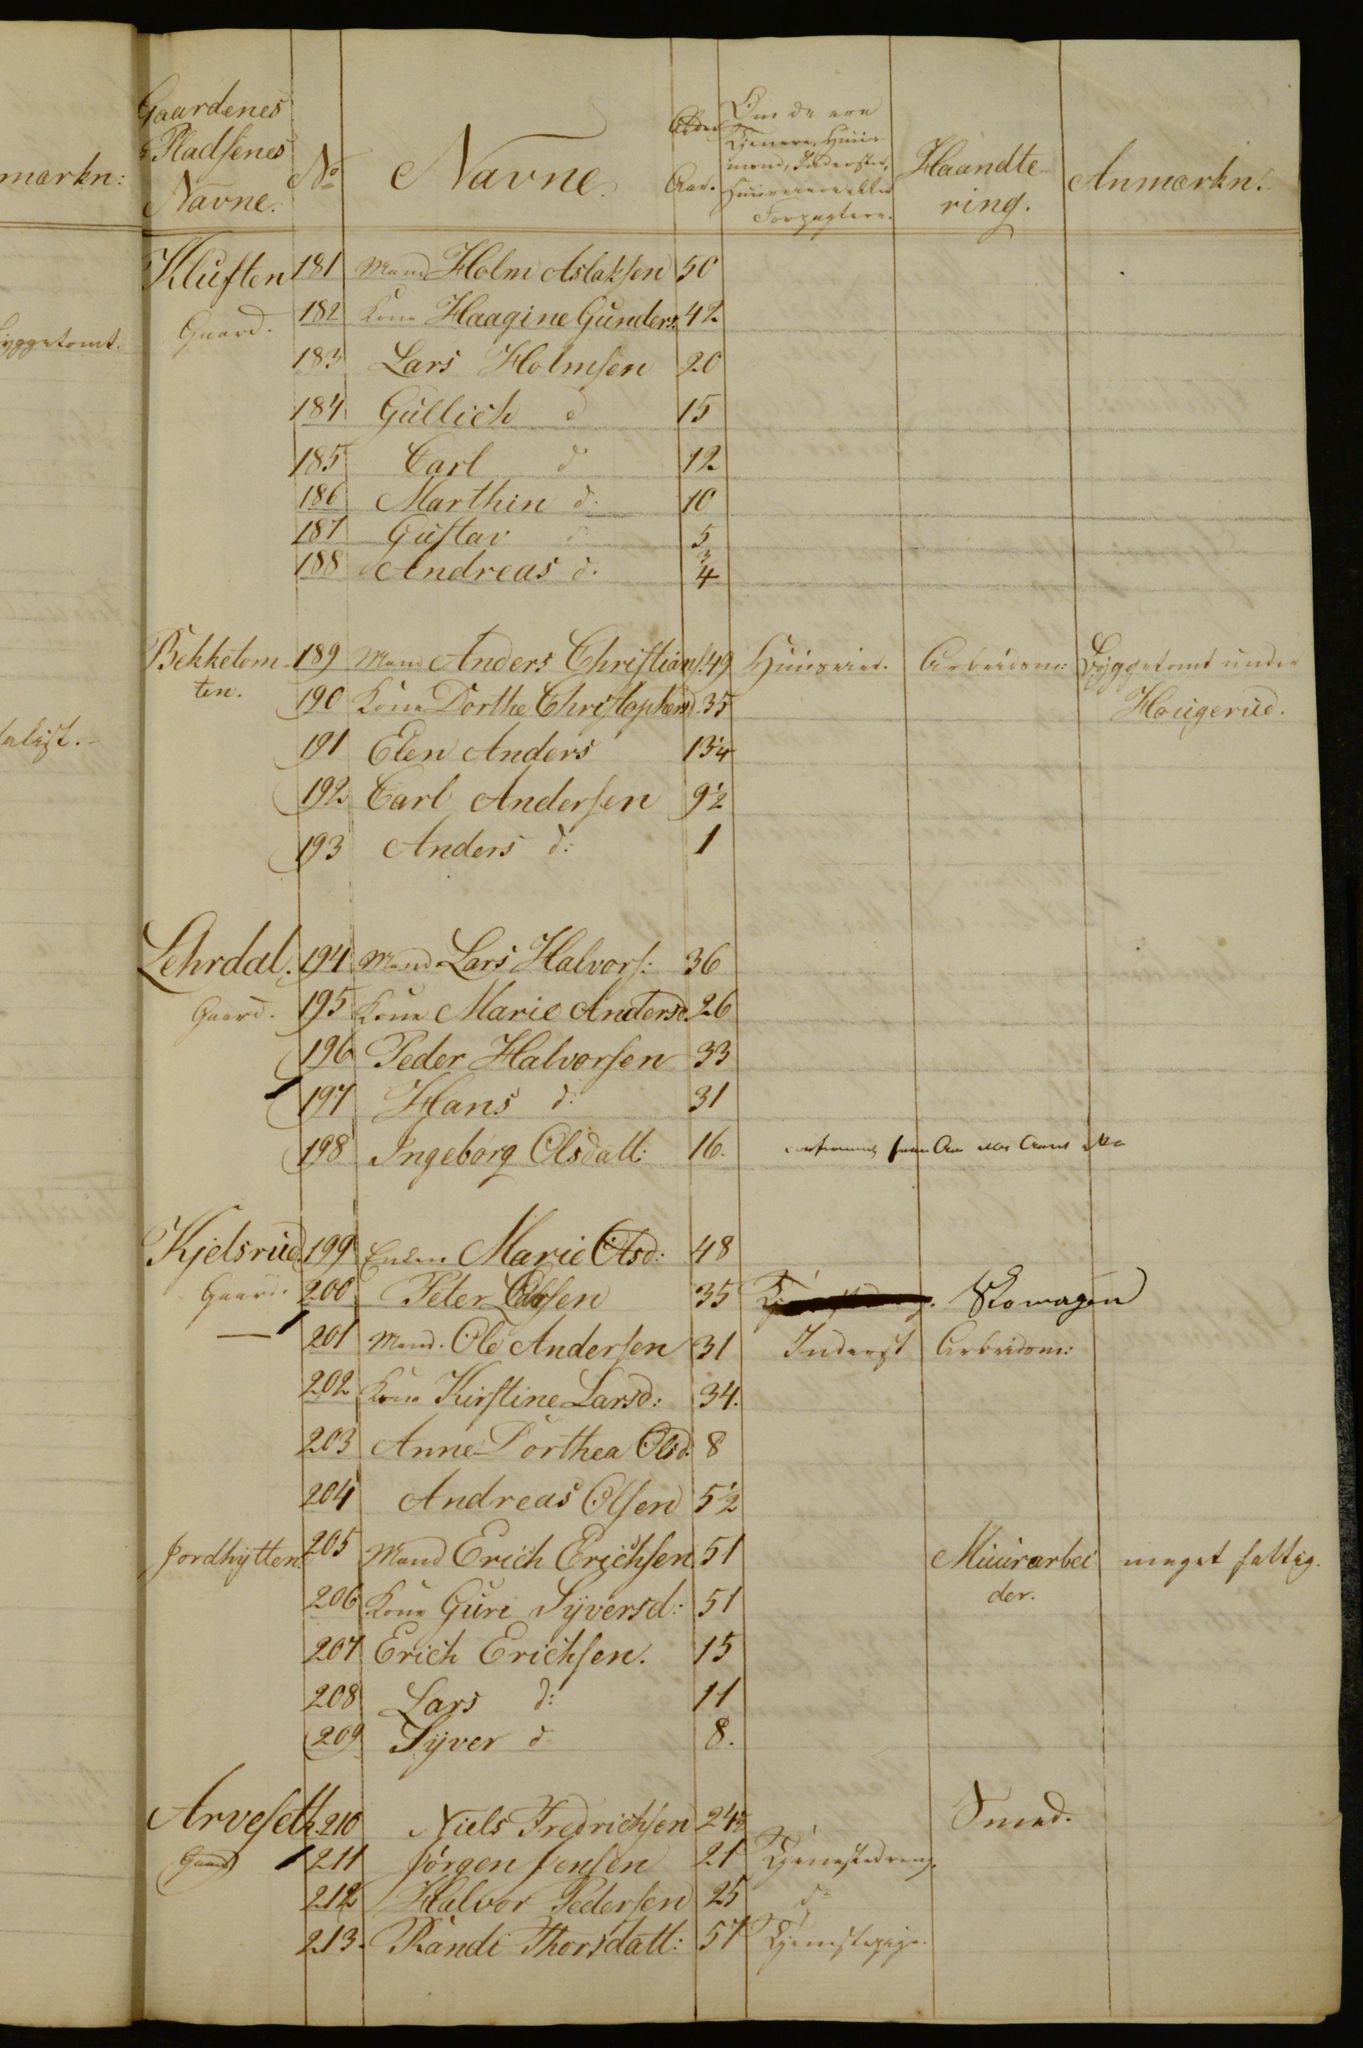 Gaardenes
Pladsenes
Navne.
No
Navne.
Alder
Aar.
Om de ere
Tjenere, Huus
mænd, Inderster,
Forpagtere.
Haandte-
ring.
Anmærkn:
mærkn:
Kluften 181 Mand Holm Aslaksen 50
Gaard. 182 Kone Haagine Gunders: 42
Byggetomt.
183 Lars Holmsen 20
184 Gullich d 15
185 Carl d 12
186 Marthin d. 10
187 Gustav d 5
188 Andreas d. 3 4
Bekketom- 189 Mand Anders Christians. 49 Arbeidsm: Byggetomt under
ten. 190 Kone Dorthe Christophersd. 35 Hougerud.
191 Elen Anders 13 1/4
192 Carl Andersen 9 1/2
193 Anders d: 1
Lehrdal. 194 Mand Lars Halvors: 36
Gaard. 195 Kone Marie Andersd. 26
196 Peder Halvorsen 33
197 Hans d: 31
198 Ingeborg Olsdatt: 16.
Kjelsrud 199 Enken Marie Olsd: 48
Gaard. 200 Peter Olsen 35 Skomager
201 Mand. Ole Andersen 31 Inderst Arbeidsm:
202 Kone Kirstine Larsd: 34.
203 Anne Dorthea Olsd. 8
204 Andreas Olsen 5 1/2
Jordhytten. 205 Mand Erich Erichsen. 51 Muurarbei meget fattig.
206 Kone Guri Syversd: 51 der.
207 Erich Erichsen. 15
208 Lars d: 11
209 Syver d 8.
Arveseth. 210 Niels Fredrichsen 24 Smed.
Gaard 211 Jörgen Jensen 21 Tjenestedreng.
212 Halvor Pedersen 25 do
213. Randi Thorsdatt: 57 Tjenestepige.